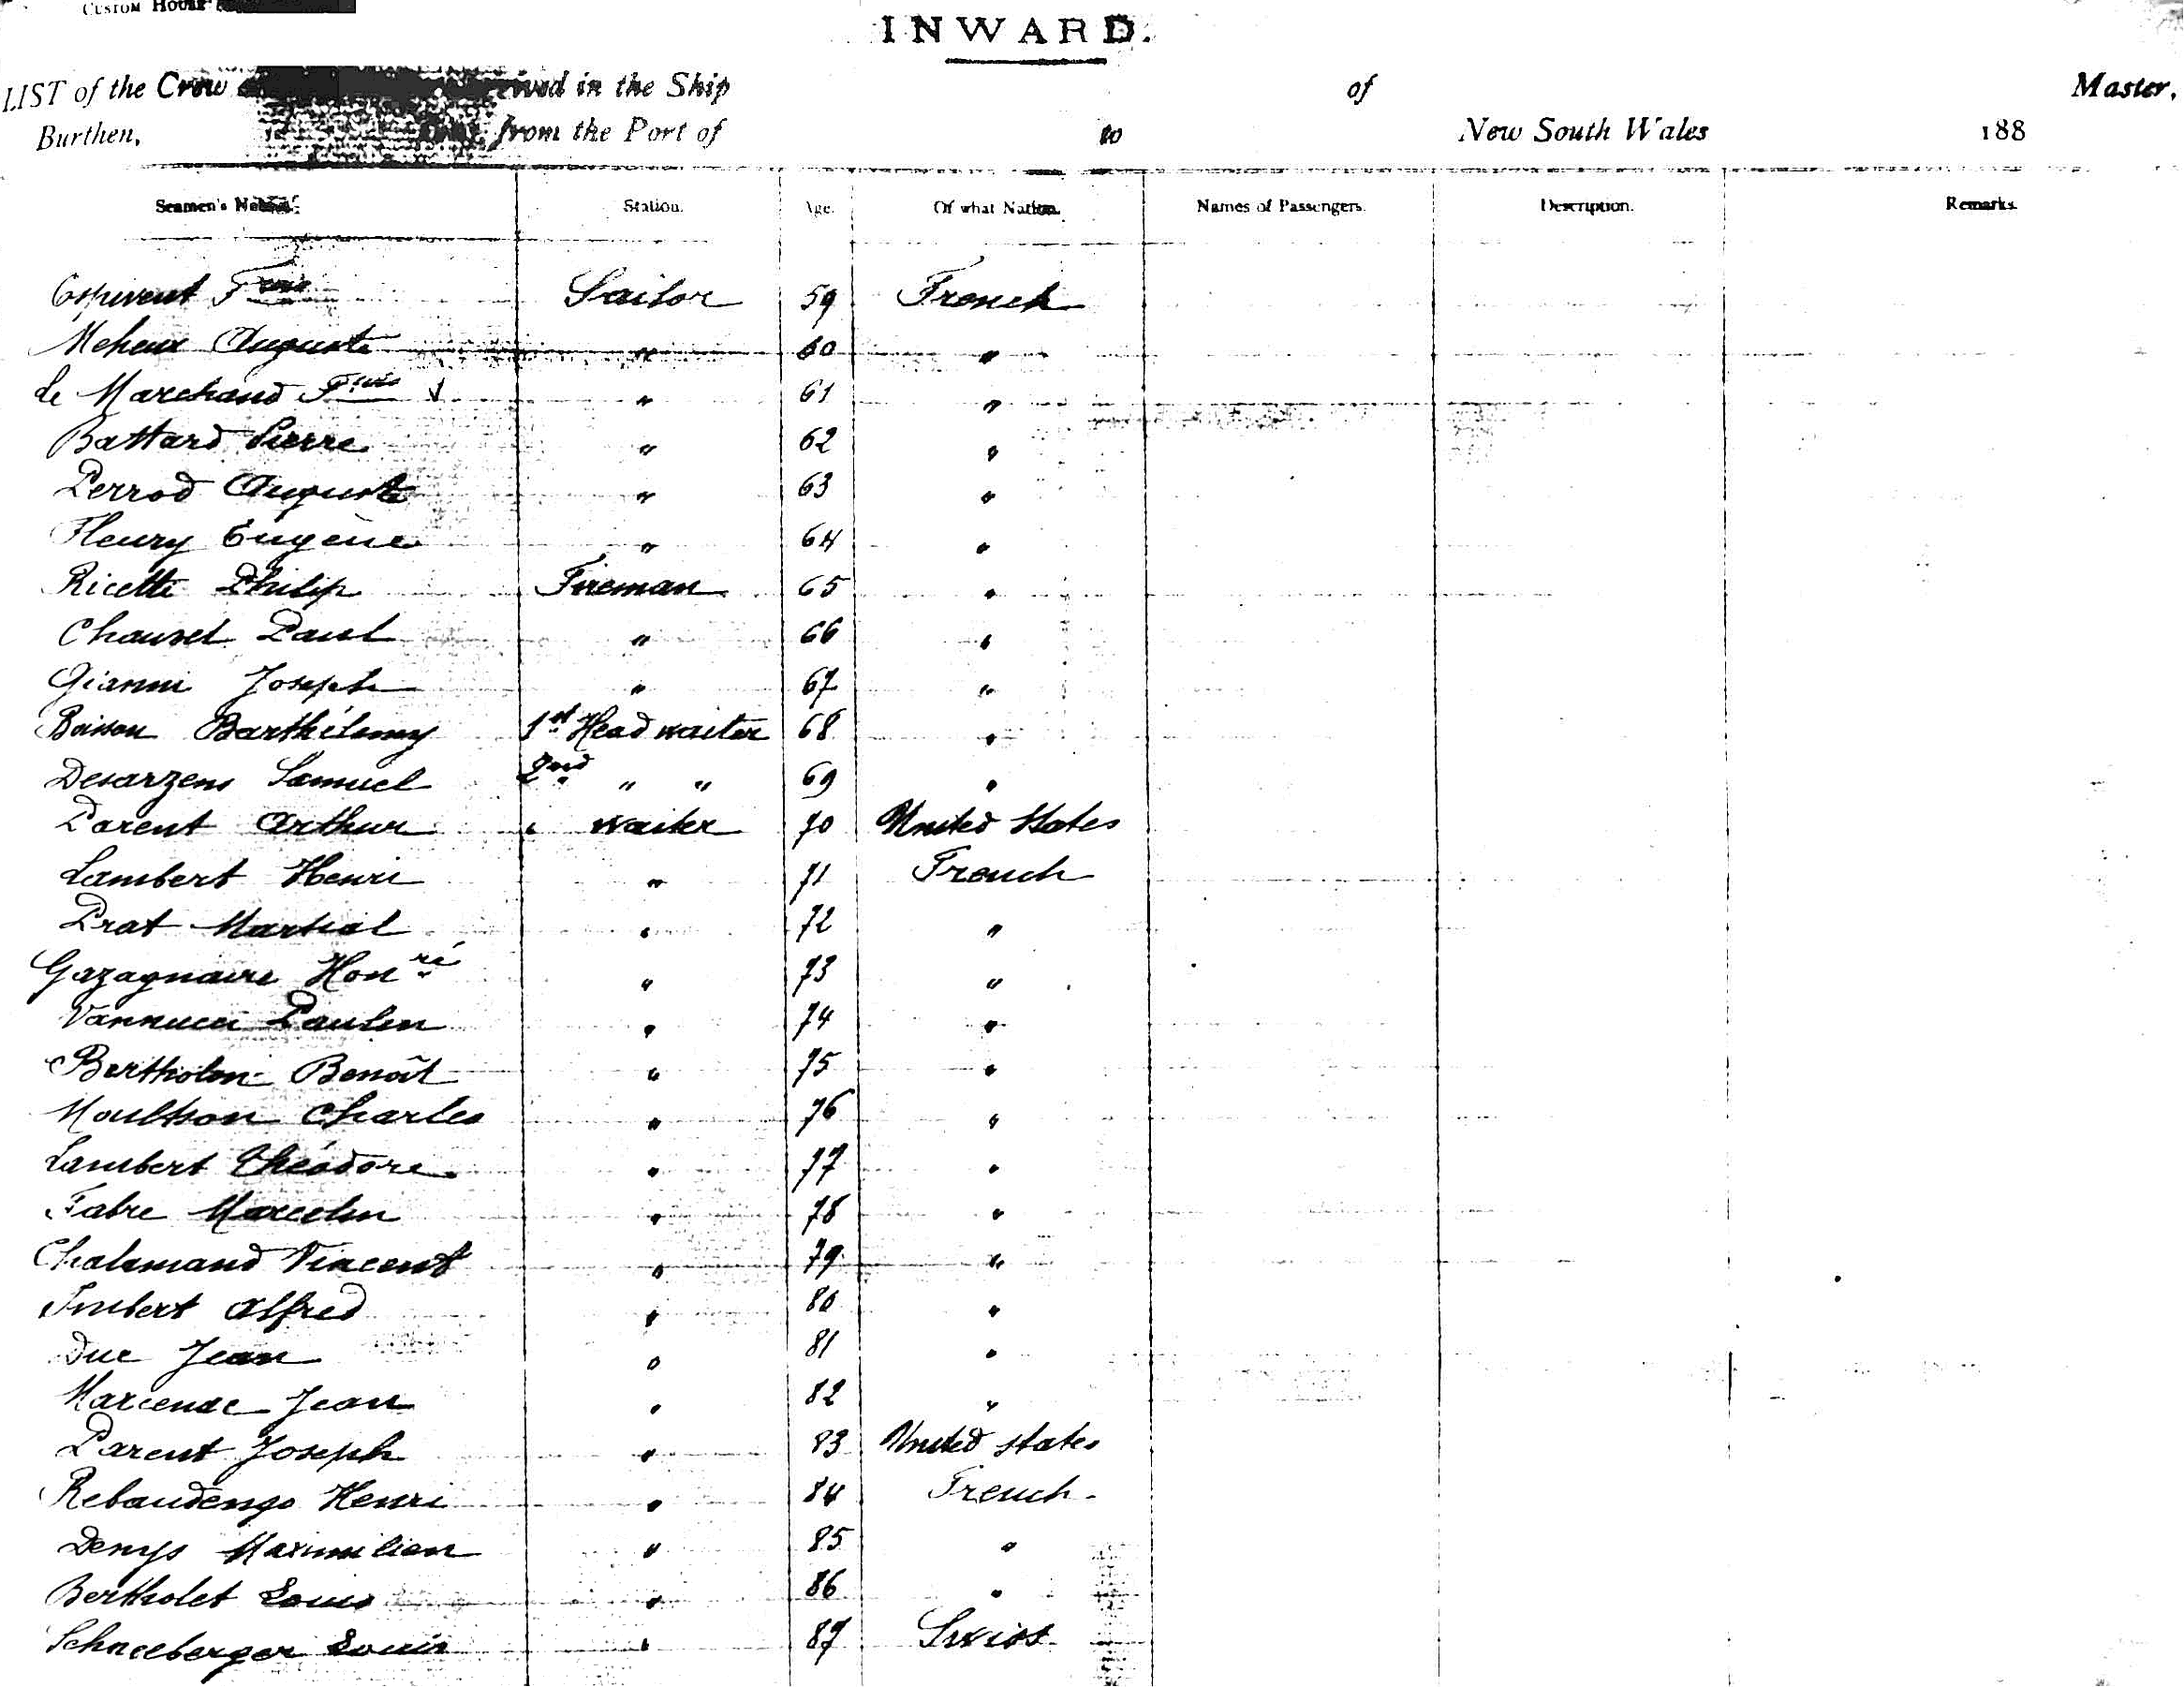 CUSTOM HOUSE
INWARD.
LIST of the Crew rived in the Ship of Master,
Burthen, from the Port of to New South Wales 188
Seamen's Station. Age. Of what Nation. Names of Passengers. Description. Remarks.
Espivent Fcois Sailor 59 French
Meheux Auguste " 60 "
Le Marchand Fcois " 61 "
Battard Pierre " 62 "
Perrod Auguste " 63 "
Fleury Eugène " 64 "
Ricetti Philip Fireman 65 "
Chauvet Paul " 66 "
Gianni Joseph " 67 "
Boisson Barthélemy 1st Head waiter 68 "
Desarzens Samuel 2nd " " 69 "
Parent Arthur " waiter 70 United States
Lambert Henri " 71 French
Prat Martial " 72 "
Gazagnaire Honré " 73 "
Vannucci Paulin " 74 "
Bertholon Benoît " 75 "
Moulthon Charles " 76 "
Lambert Théodore " 77 "
Fabre Marcelin " 78 "
Chalamand Vincent " 79 "
Imbert Alfred " 80 "
Duc Jean " 81 "
Marcenac Jean " 82 "
Parent Joseph " 83 United States
Rebaudengo Henri " 84 French
Denys Maximilien " 85 "
Bertholet Louis " 86 "
Schneeberger Louis " 87 Swiss